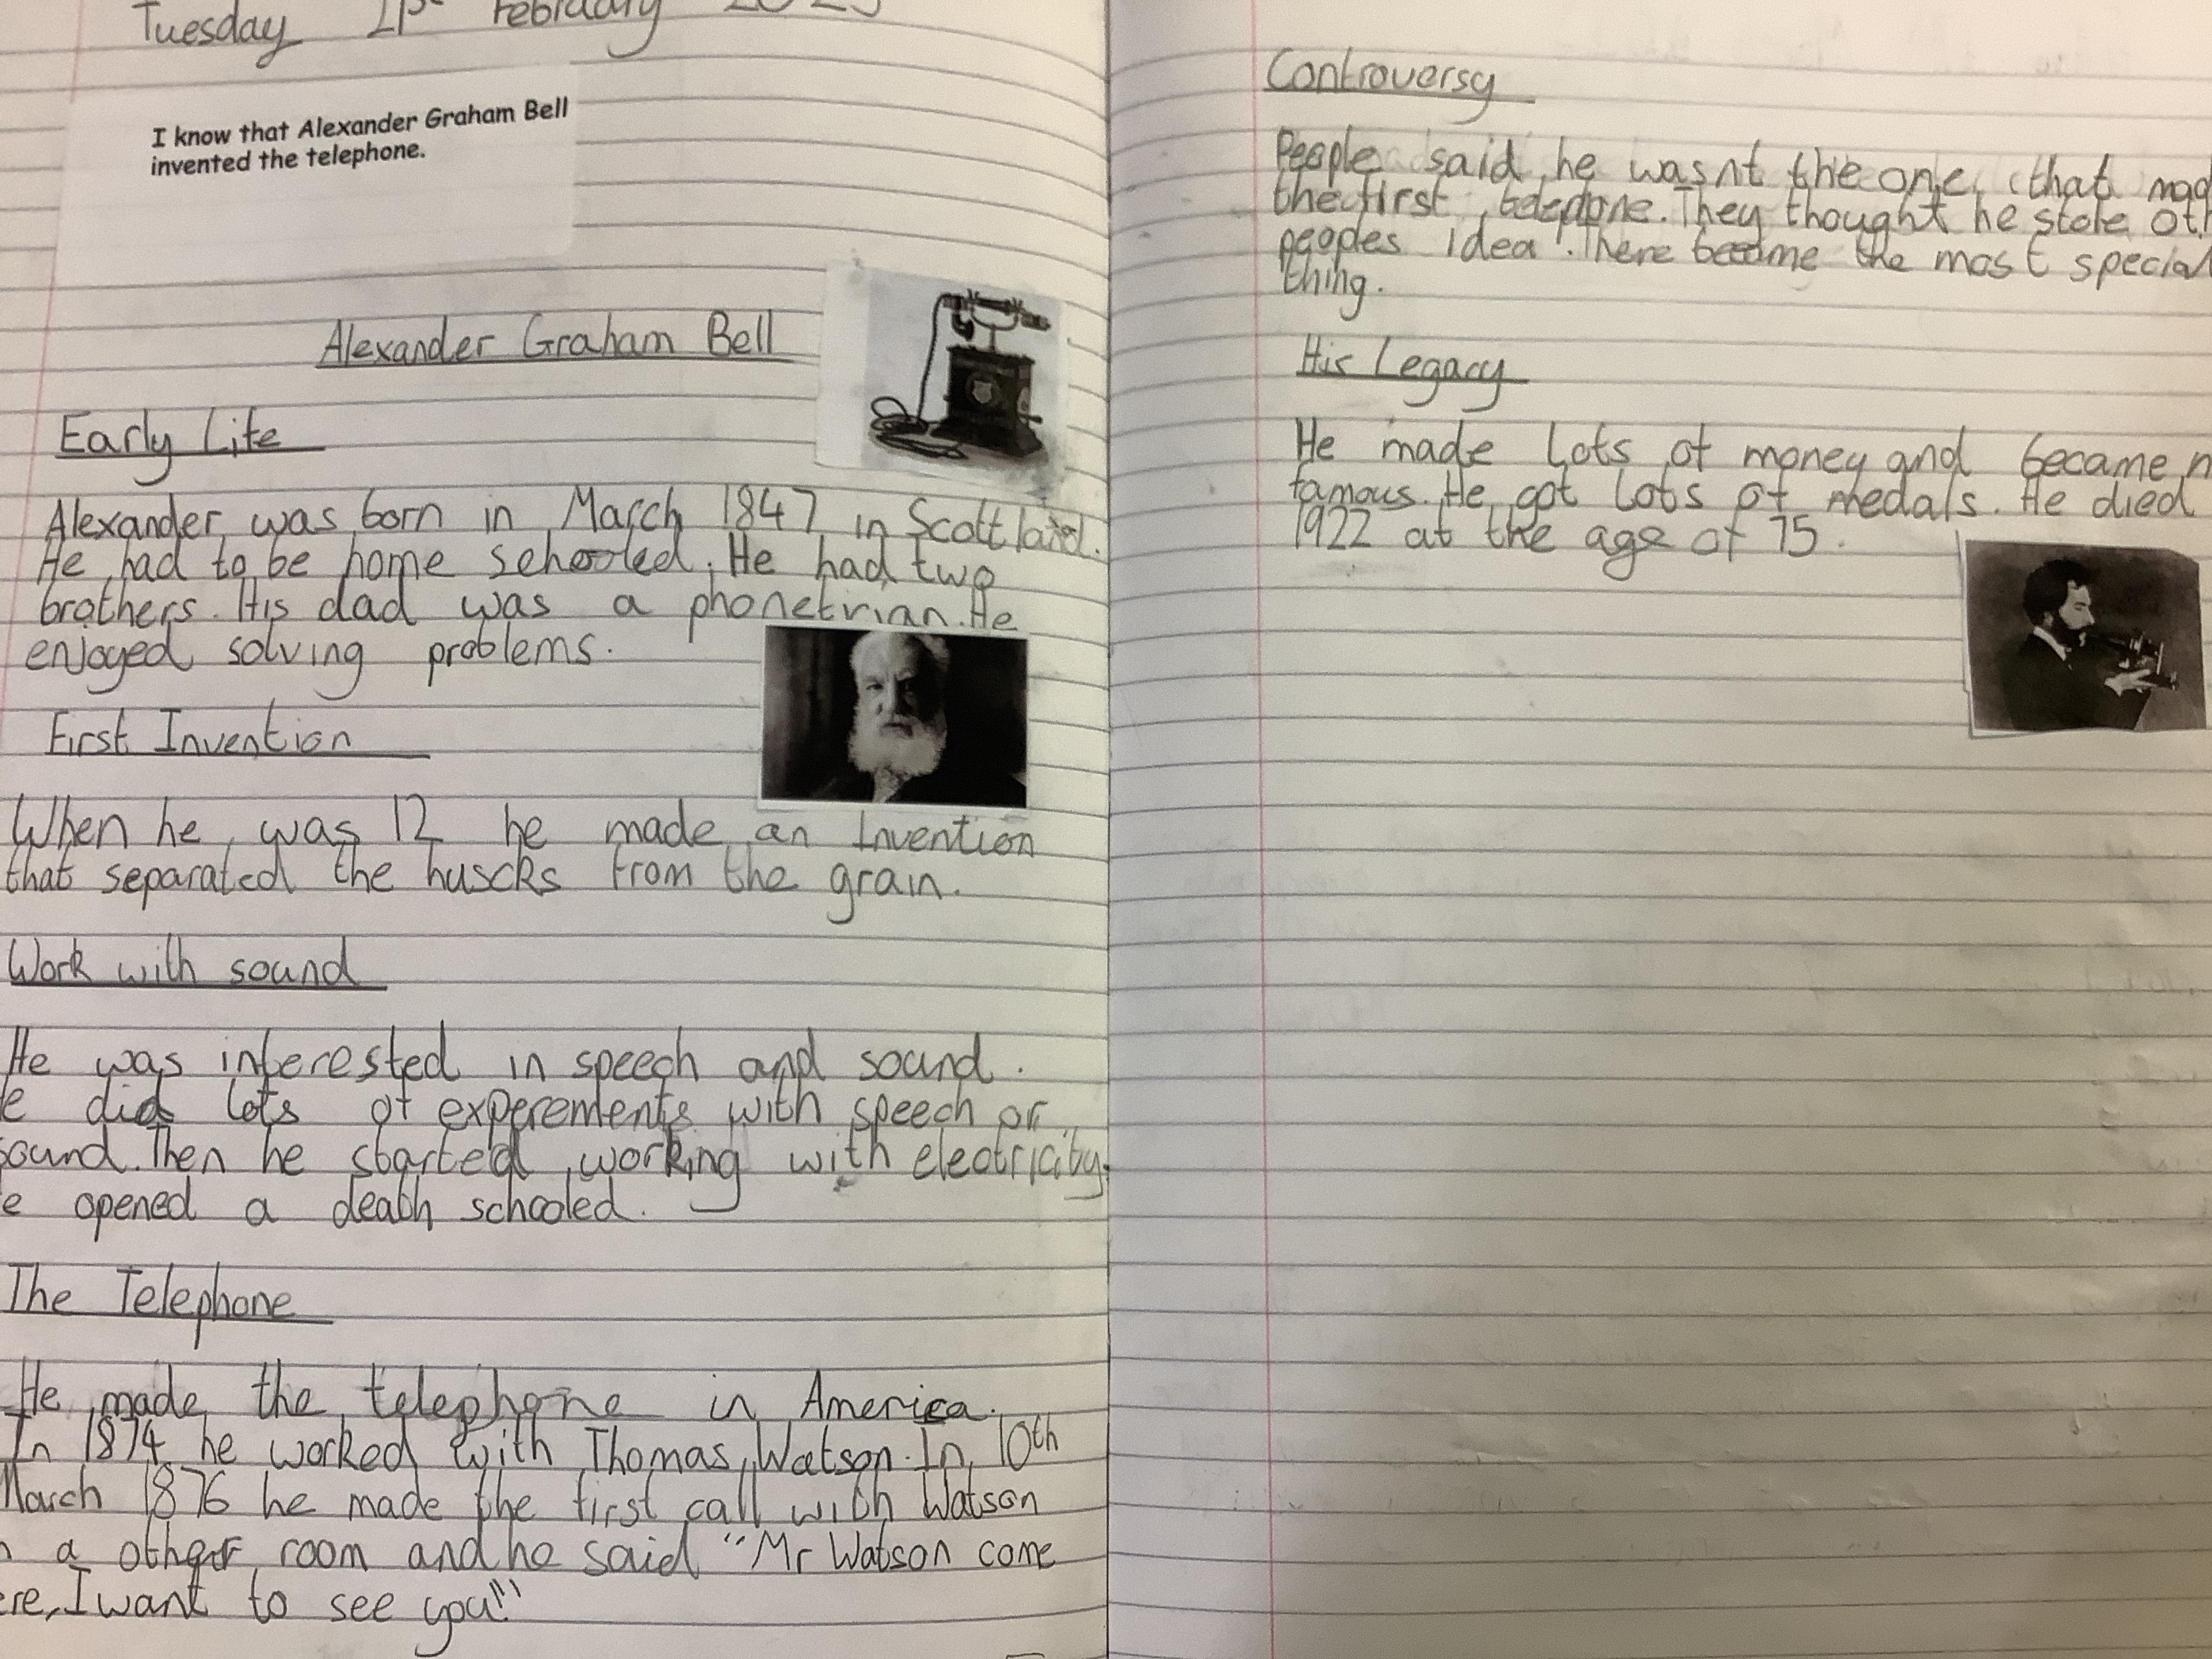 Tuesday 21st February 2023
I know that Alexander Graham Bell
invented the telephone.
Alexander Graham Bell
Early Life
Alexander was born in March 1847 in Scottland.
He had to be home schooled. He had two
brothers. His dad was a phonetrian. He
enjoyed solving problems.
First Invention
When he was 12 he made an Invention
that separated the huscks from the grain.
Work with sound
He was interested in speech and sound.
e did lots of experements with speech or
sound. Then he started working with electricity.
e opened a death schooled.
The Telephone
He made the telephone in America.
In 1874 he worked with Thomas Watson. In 10th
March 1876 he made the first call with Watson
a other room and he said "Mr Watson come
ere, I want to see you!"
Controversy
People said he wasnt the one that mad
the first telepone. They thought he stole oth
peoples idea!. There became the most special
thing.
His Legacy
He made lots of money and became
famous. He got lots of medals. He died
1922 at the age of 75.